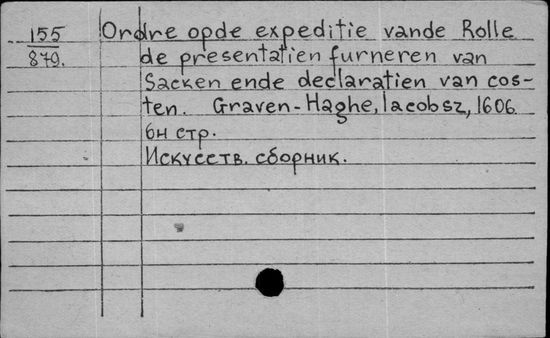 155 Ordre opde expeditie vande Rolle
879. de presentatien furneren van
Sacken ende declaratien van cos-
ten. Graven-Haghe, Iacobsz, 1606.
6н стр.
Искусств. сборник.